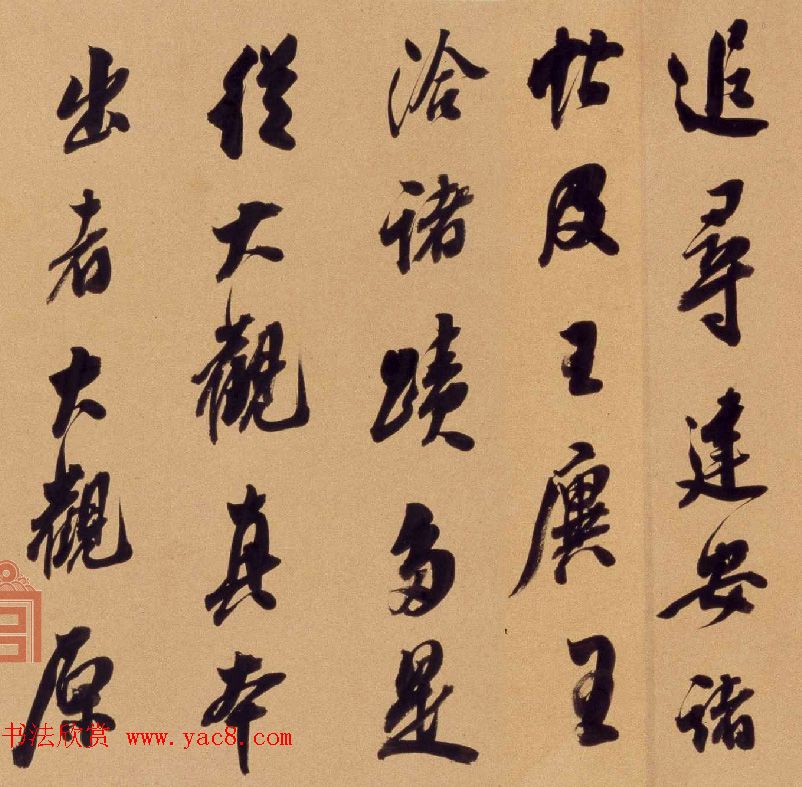 追尋建安諸
帖及王廙王
洽諸蹟多是
從大觀真本
出者大觀原
书法欣赏 www.yac8.com